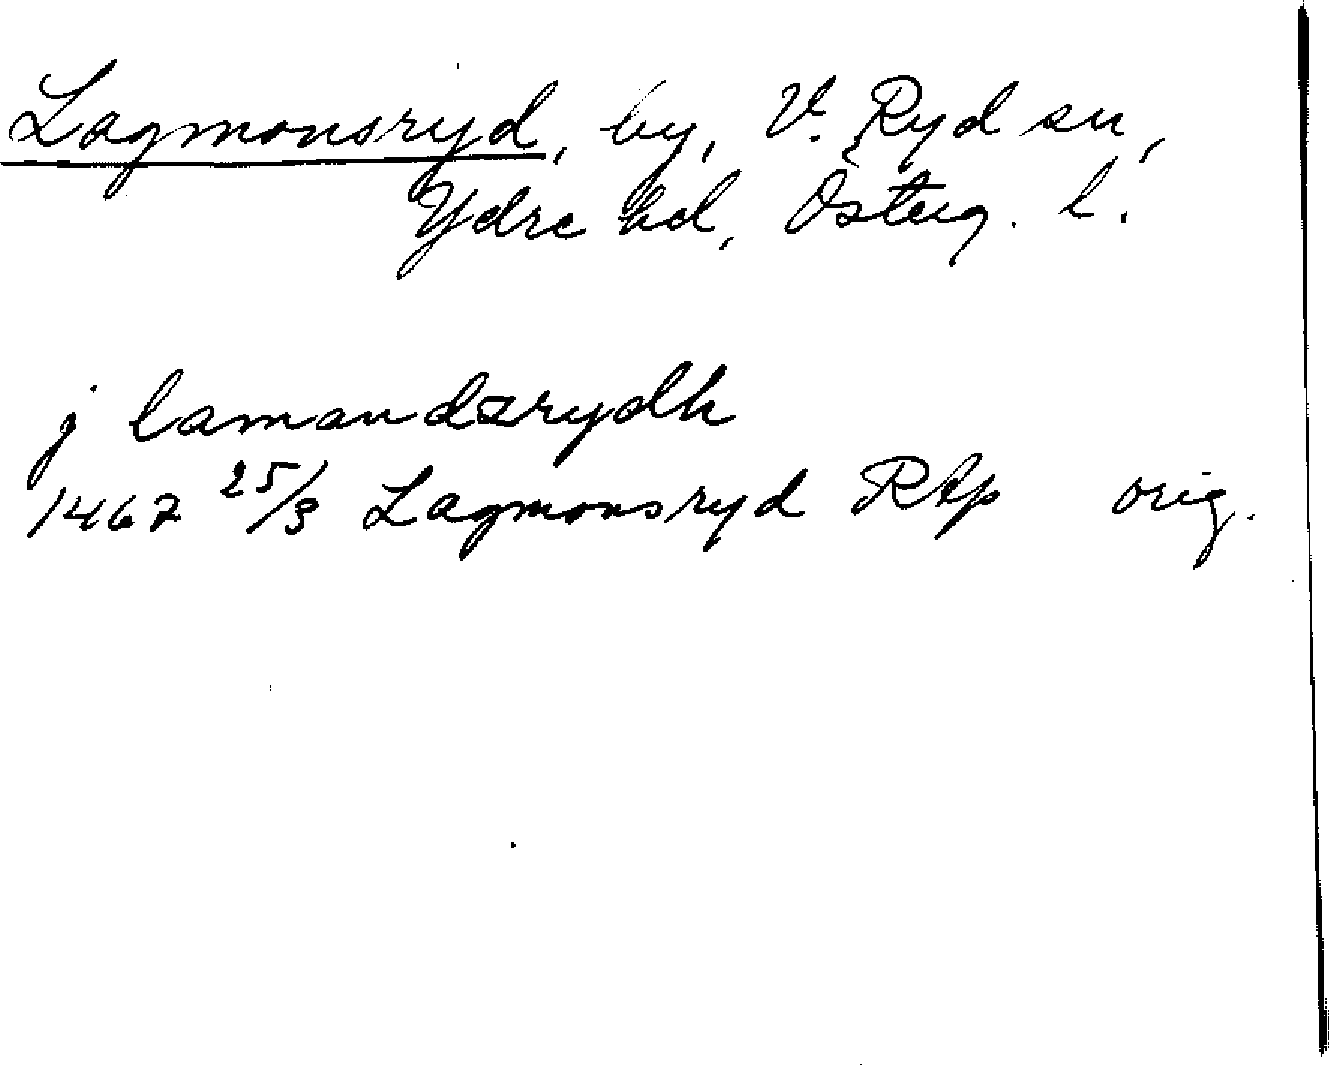 Lagmonsryd, by, V. Ryd sn,
Ydre hd, Österg. l.
j lamandzrydh
1467 25/3 Lagmonsryd RAp orig.